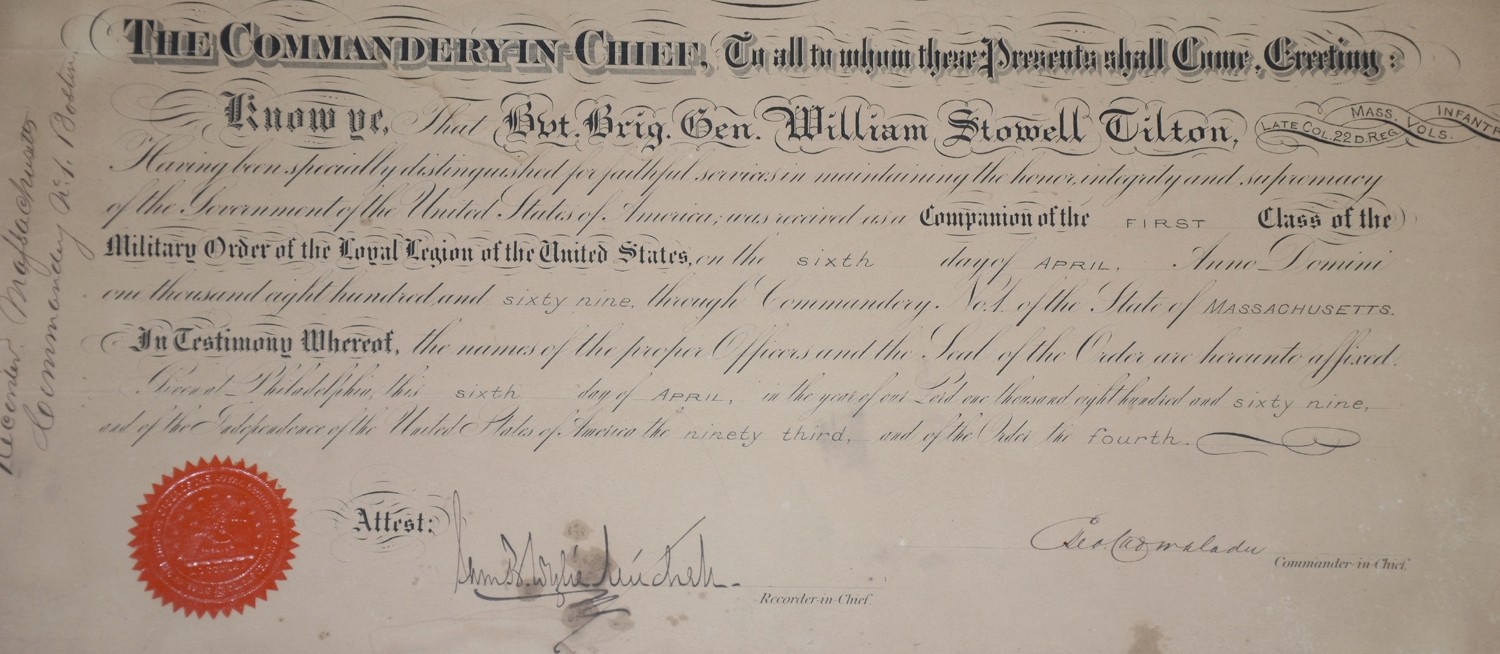 THE COMMANDERY IN CHIEF, To all to whom these Presents shall Come, Greeting:
Know ye, That Bvt. Brig. Gen. William Stowell Tilton, LATE COL. 22D. REG. MASS. VOLS. INFANTR
Having been specially distinguished for faithful services in maintaining the honor, integrity and supremacy
of the Government of the United States of America; was received as a Companion of the FIRST Class of the
Military Order of the Loyal Legion of the United States, on the sixth day of APRIL. Anno Domini
one thousand eight hundred and sixty nine, through Commandery No. 1. of the State of MASSACHUSETTS.
In Testimony Whereof, the names of the proper Officers and the Seal of the Order are hereunto affixed.
Given at Philadelphia, this sixth day of APRIL, in the year of our Lord one thousand, eight hundred and sixty nine,
and of the Independence of the United States of America the ninety third, and of the Order the fourth.
Attest:
Sam B. Wylie Mitchell
Recorder-in-Chief.
Geo Cadwalader
Commander-in-Chief.
Recorder. Massachusetts
Commandery No. 1. Boston.